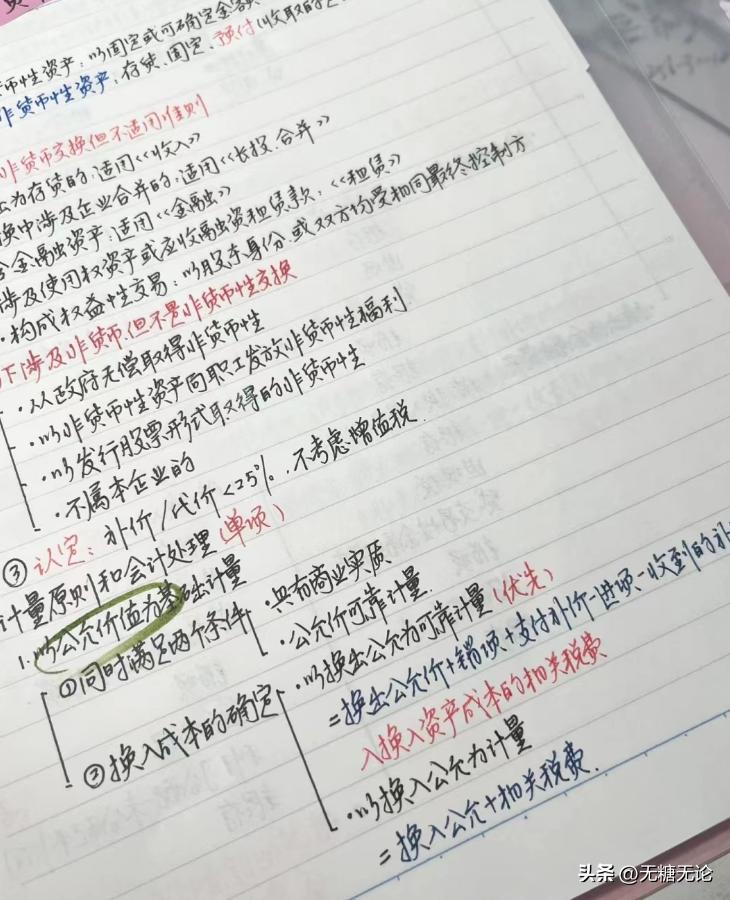 币性资产：以固定或可确定金额
非货币性资产：存货、固定、预付（收取的
非货币交换但不适用准则
为存货的，适用《收入》
换中涉及企业合并的，适用《长投、合并》
金融资产：适用《金融》
涉及使用权资产或应收融资租赁款：《租赁》
·构成权益性交易：以股东身份、或双方均受相同最终控制方
下涉及非货币，但不是非货币性交换
·从政府无偿取得非货币性
·以非货币性资产向职工发放非货币性福利
·以发行股票形式取得的非货币性
·不属本企业的
③认定：补价/代价<25%，不考虑增值税
计量原则和会计处理（单项）
1.以公允价值为基础计量
①同时满足两个条件
·具有商业实质
·公允价可靠计量
②换入成本的确定
·以换出公允为可靠计量（优先）
=换出公允价+销项+支付补价-进项-收到的补
入换入资产成本的相关税费
·以换入公允为计量
=换入公允+相关税费.
头条 @无糖无论